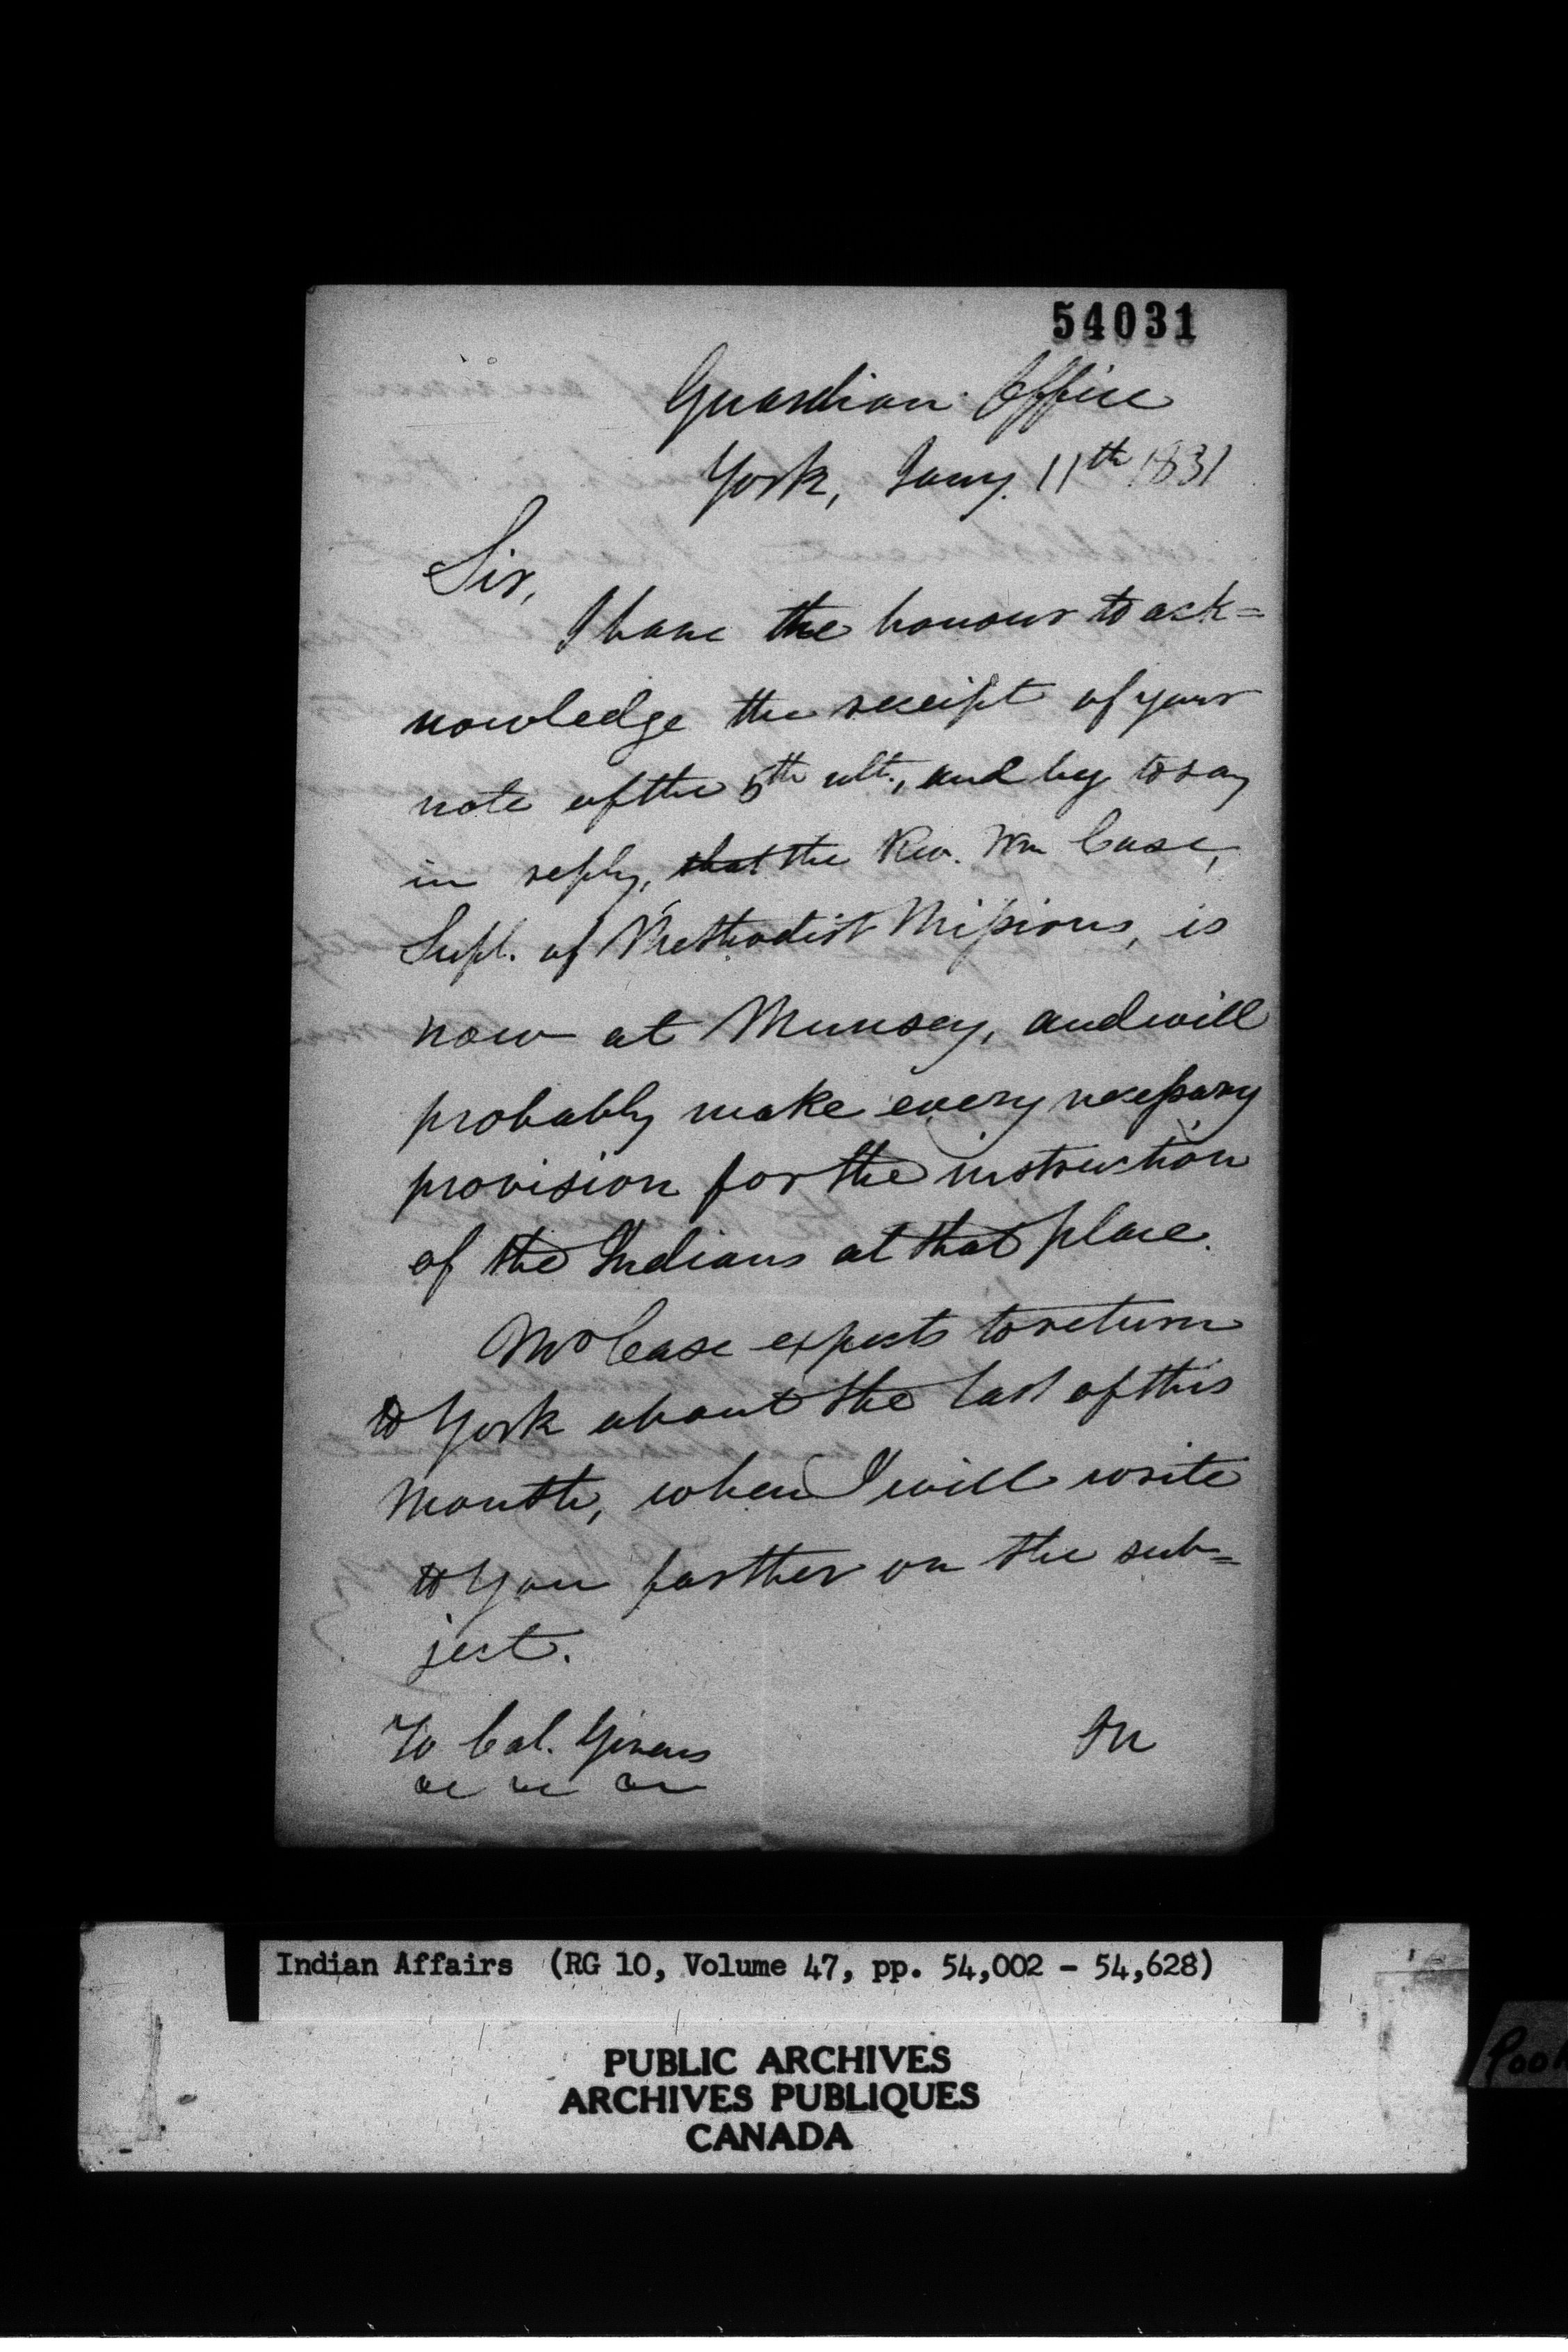 54031
Guardian Office
York, Jany. 11th 1831
Sir,
I have the honour to ack=
nowledge the receipt of your
note of the 5th ult., and beg to say
in reply, that the Rev. Wm Case,
Supt. of Methodist Missions, is
now at Munsey, and will
probably make every necessary
provision for the instruction
of the Indians at that place.
Mr Case expects to return
to York about the last of this
Month, when I will write
to You farther on the sub=
ject.
To Col. Givens
Indian Affairs (RG 10, Volume 47, pp. 54,002 - 54,628)
PUBLIC ARCHIVES
ARCHIVES PUBLIQUES
CANADA